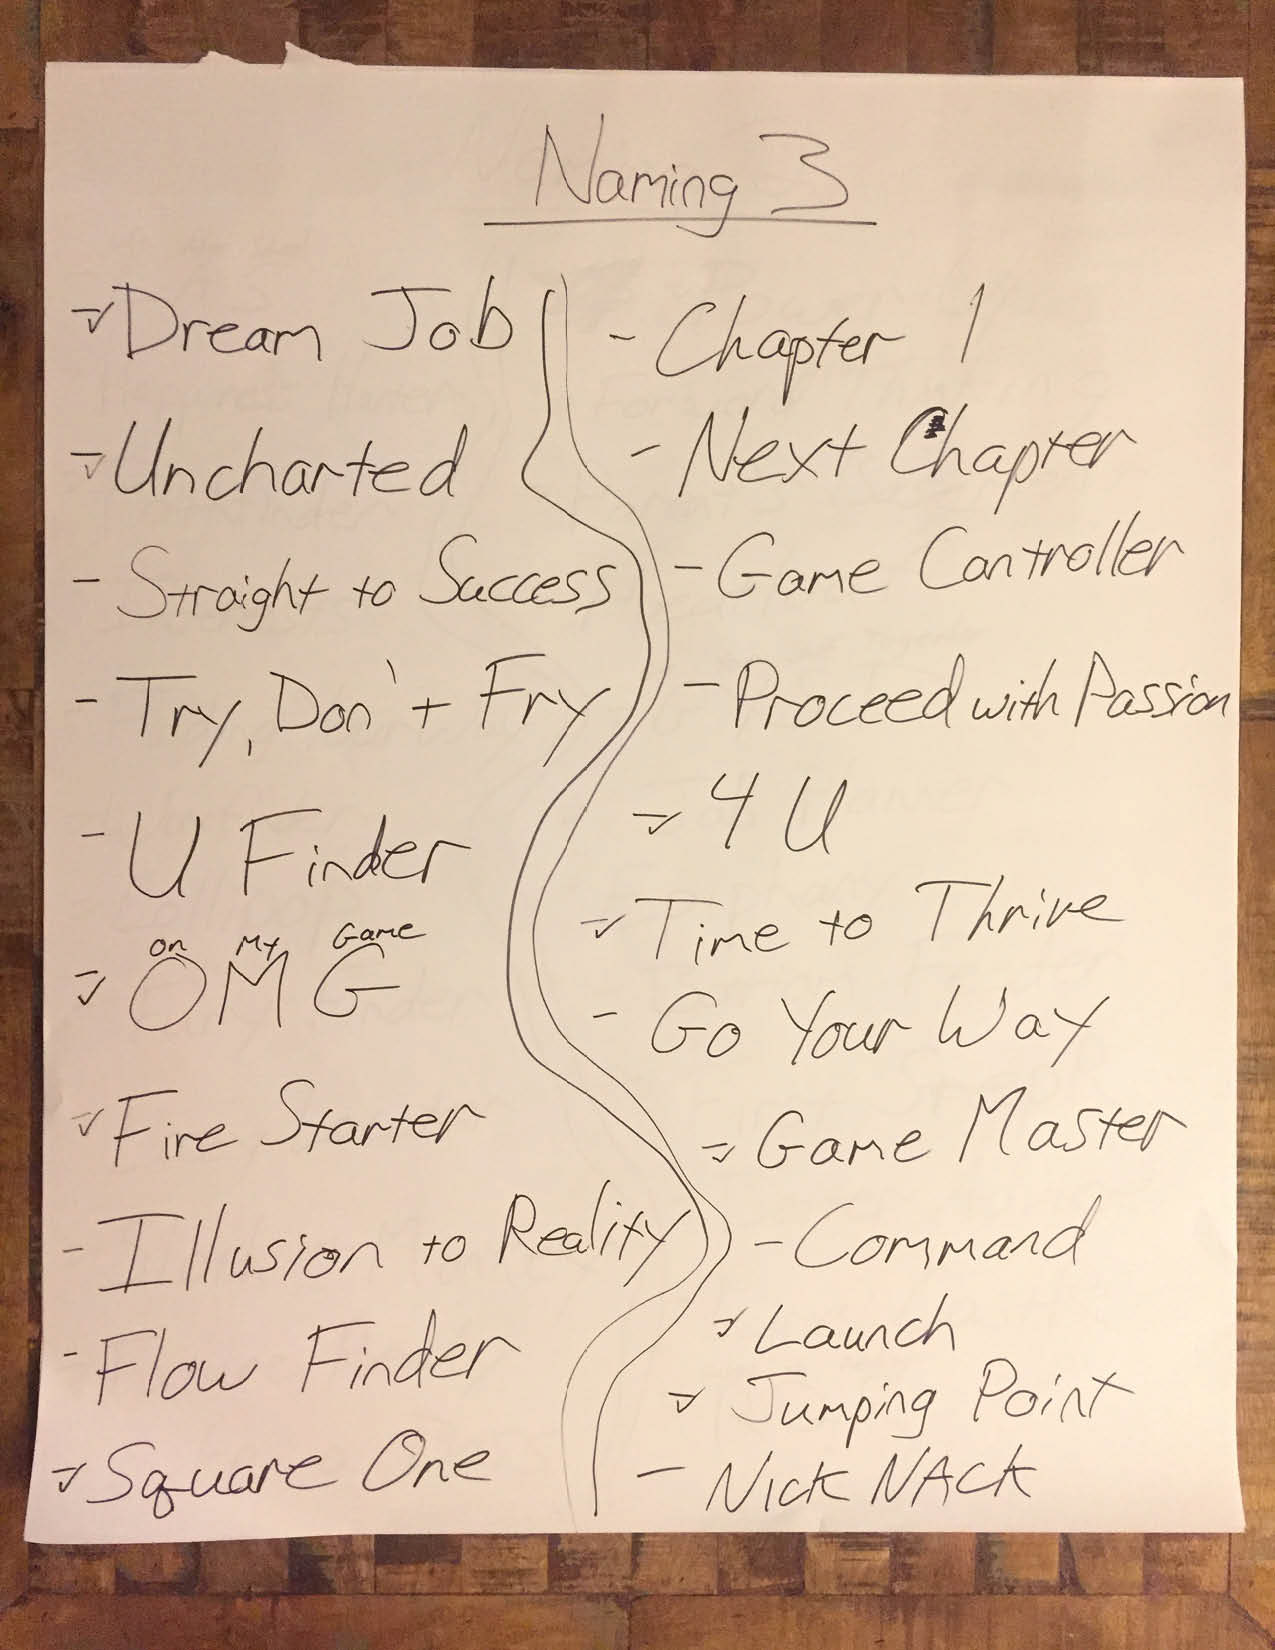 Naming 3
✓Dream Job
✓Uncharted
- Straight to Success
- Try, Don't Fry
- U Finder
on My Game
✓ OMG
✓Fire Starter
- Illusion to Reality
- Flow Finder
✓Square One
- Chapter 1
- Next Chapter
- Game Controller
- Proceed with Passion
✓ 4 U
✓Time to Thrive
- Go Your Way
✓ Game Master
- Command
✓Launch
✓ Jumping Point
- Nick NAck